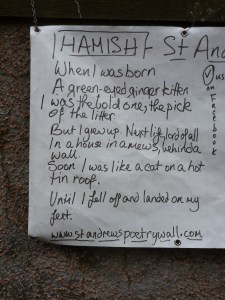 HAMISH - St And
When I was born
A green-eyed ginger kitten
I was the bold one, the pick
Of the litter.
But I grew up. Next life, lord of all
In a house in a mews, behind a
wall.
Soon I was like a cat on a hot
tin roof.
Until I fell off and landed on my
feet.
www.standrewspoetrywall.com
on
Facebook